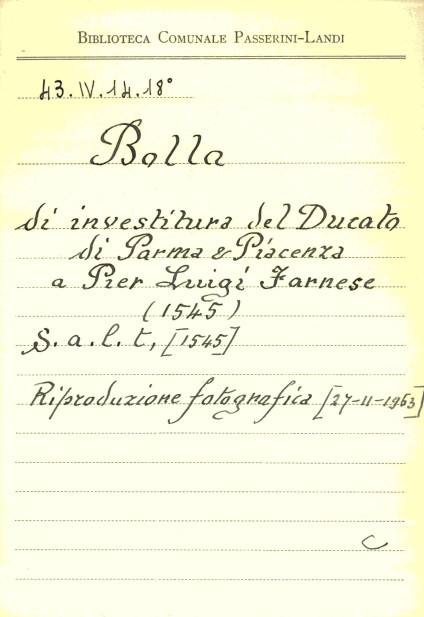 BIBLIOTECA COMUNALE PASSERINI-LANDI
43.IV.14.18°
Bolla
di investitura del Ducato
di Parma & Piacenza
a Pier Luigi Farnese
(1545)
S. a. l. t, [1545]
Riproduzione fotografica [27-11-1963]
C